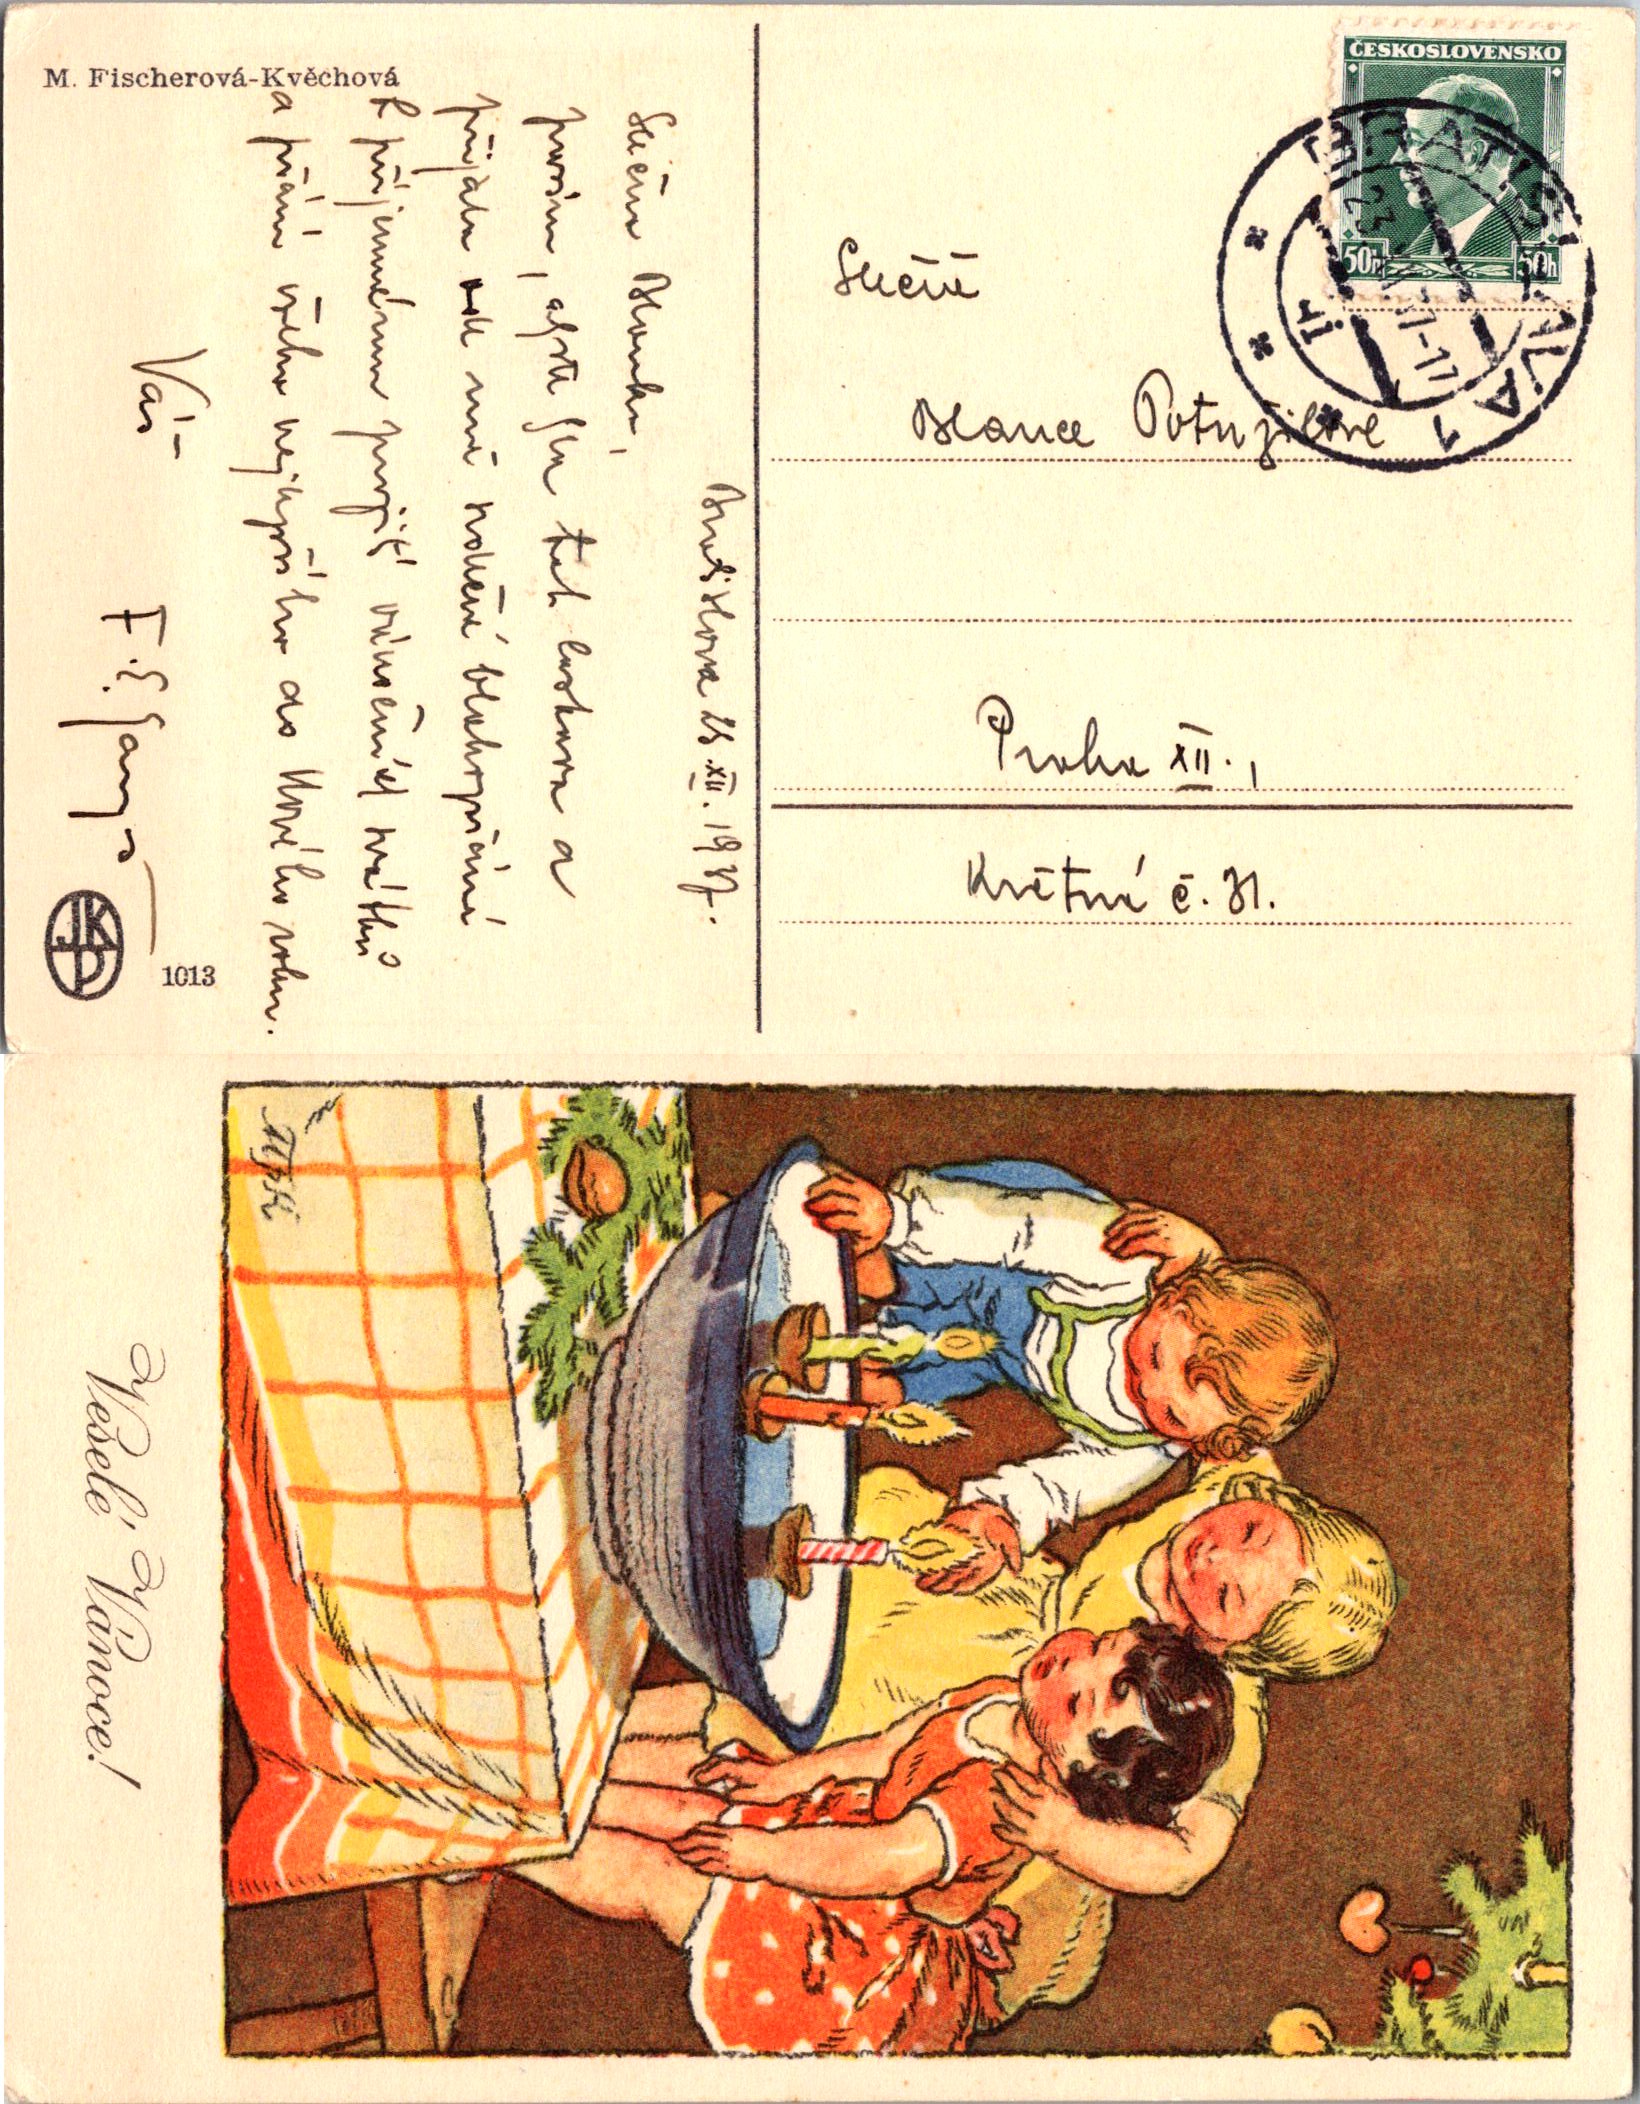 M. Fischerová-Kvěchová
Bratislava 23. XII. 1937.
Slečno Blanko,
prosím, abyste byla tak laskava a
přijala ode mne srdečné blahopřání
k příjemnému prožití vánočních svátků
a přání všeho nejlepšího do Nového roku.
Váš
JKP
1013
ČESKOSLOVENSKO
50h 50h
BRATISLAVA 1
23. XII. 37-17
Slečně
Blance Potužilové
Praha XII.,
Květná č. 31.
MFK
Veselé Vánoce!